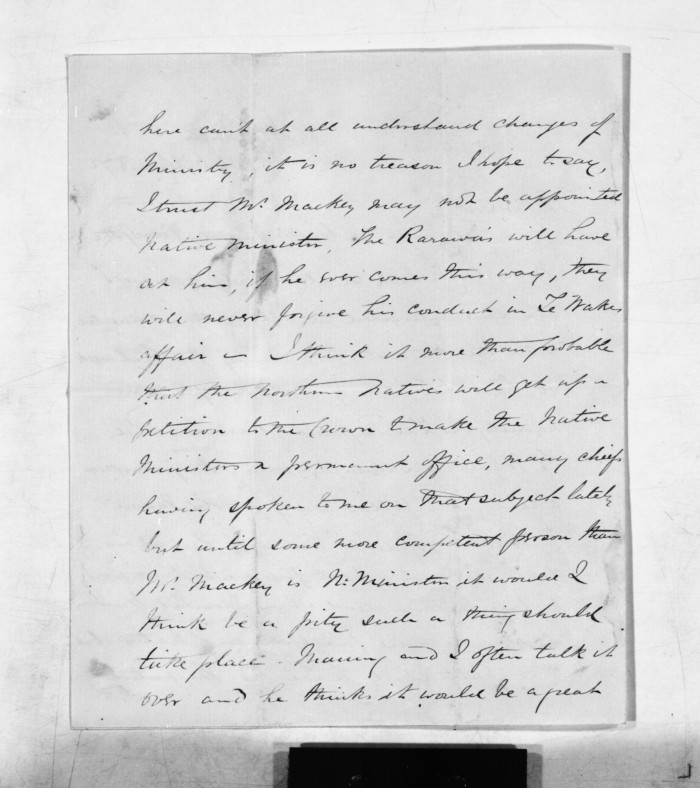 here can't at all understand changes of
Ministry, it is no treason I hope to say,
I trust Mr. Mackey may not be appointed
Native Minister. The Rarawas will have
at him, if he ever comes this way, they
will never forgive his conduct in Te Wakes
affair – I think it more than probable
that the Northern Natives will get up a
petition to the Crown to make the Native
Ministers a permanent office, many chiefs
having spoken to me on that subject lately
but until some more competent person than
Mr. Mackey is N. Minister it would I
think be a pity such a thing should
take place. Maning and I often talk it
over and he thinks it would be a great